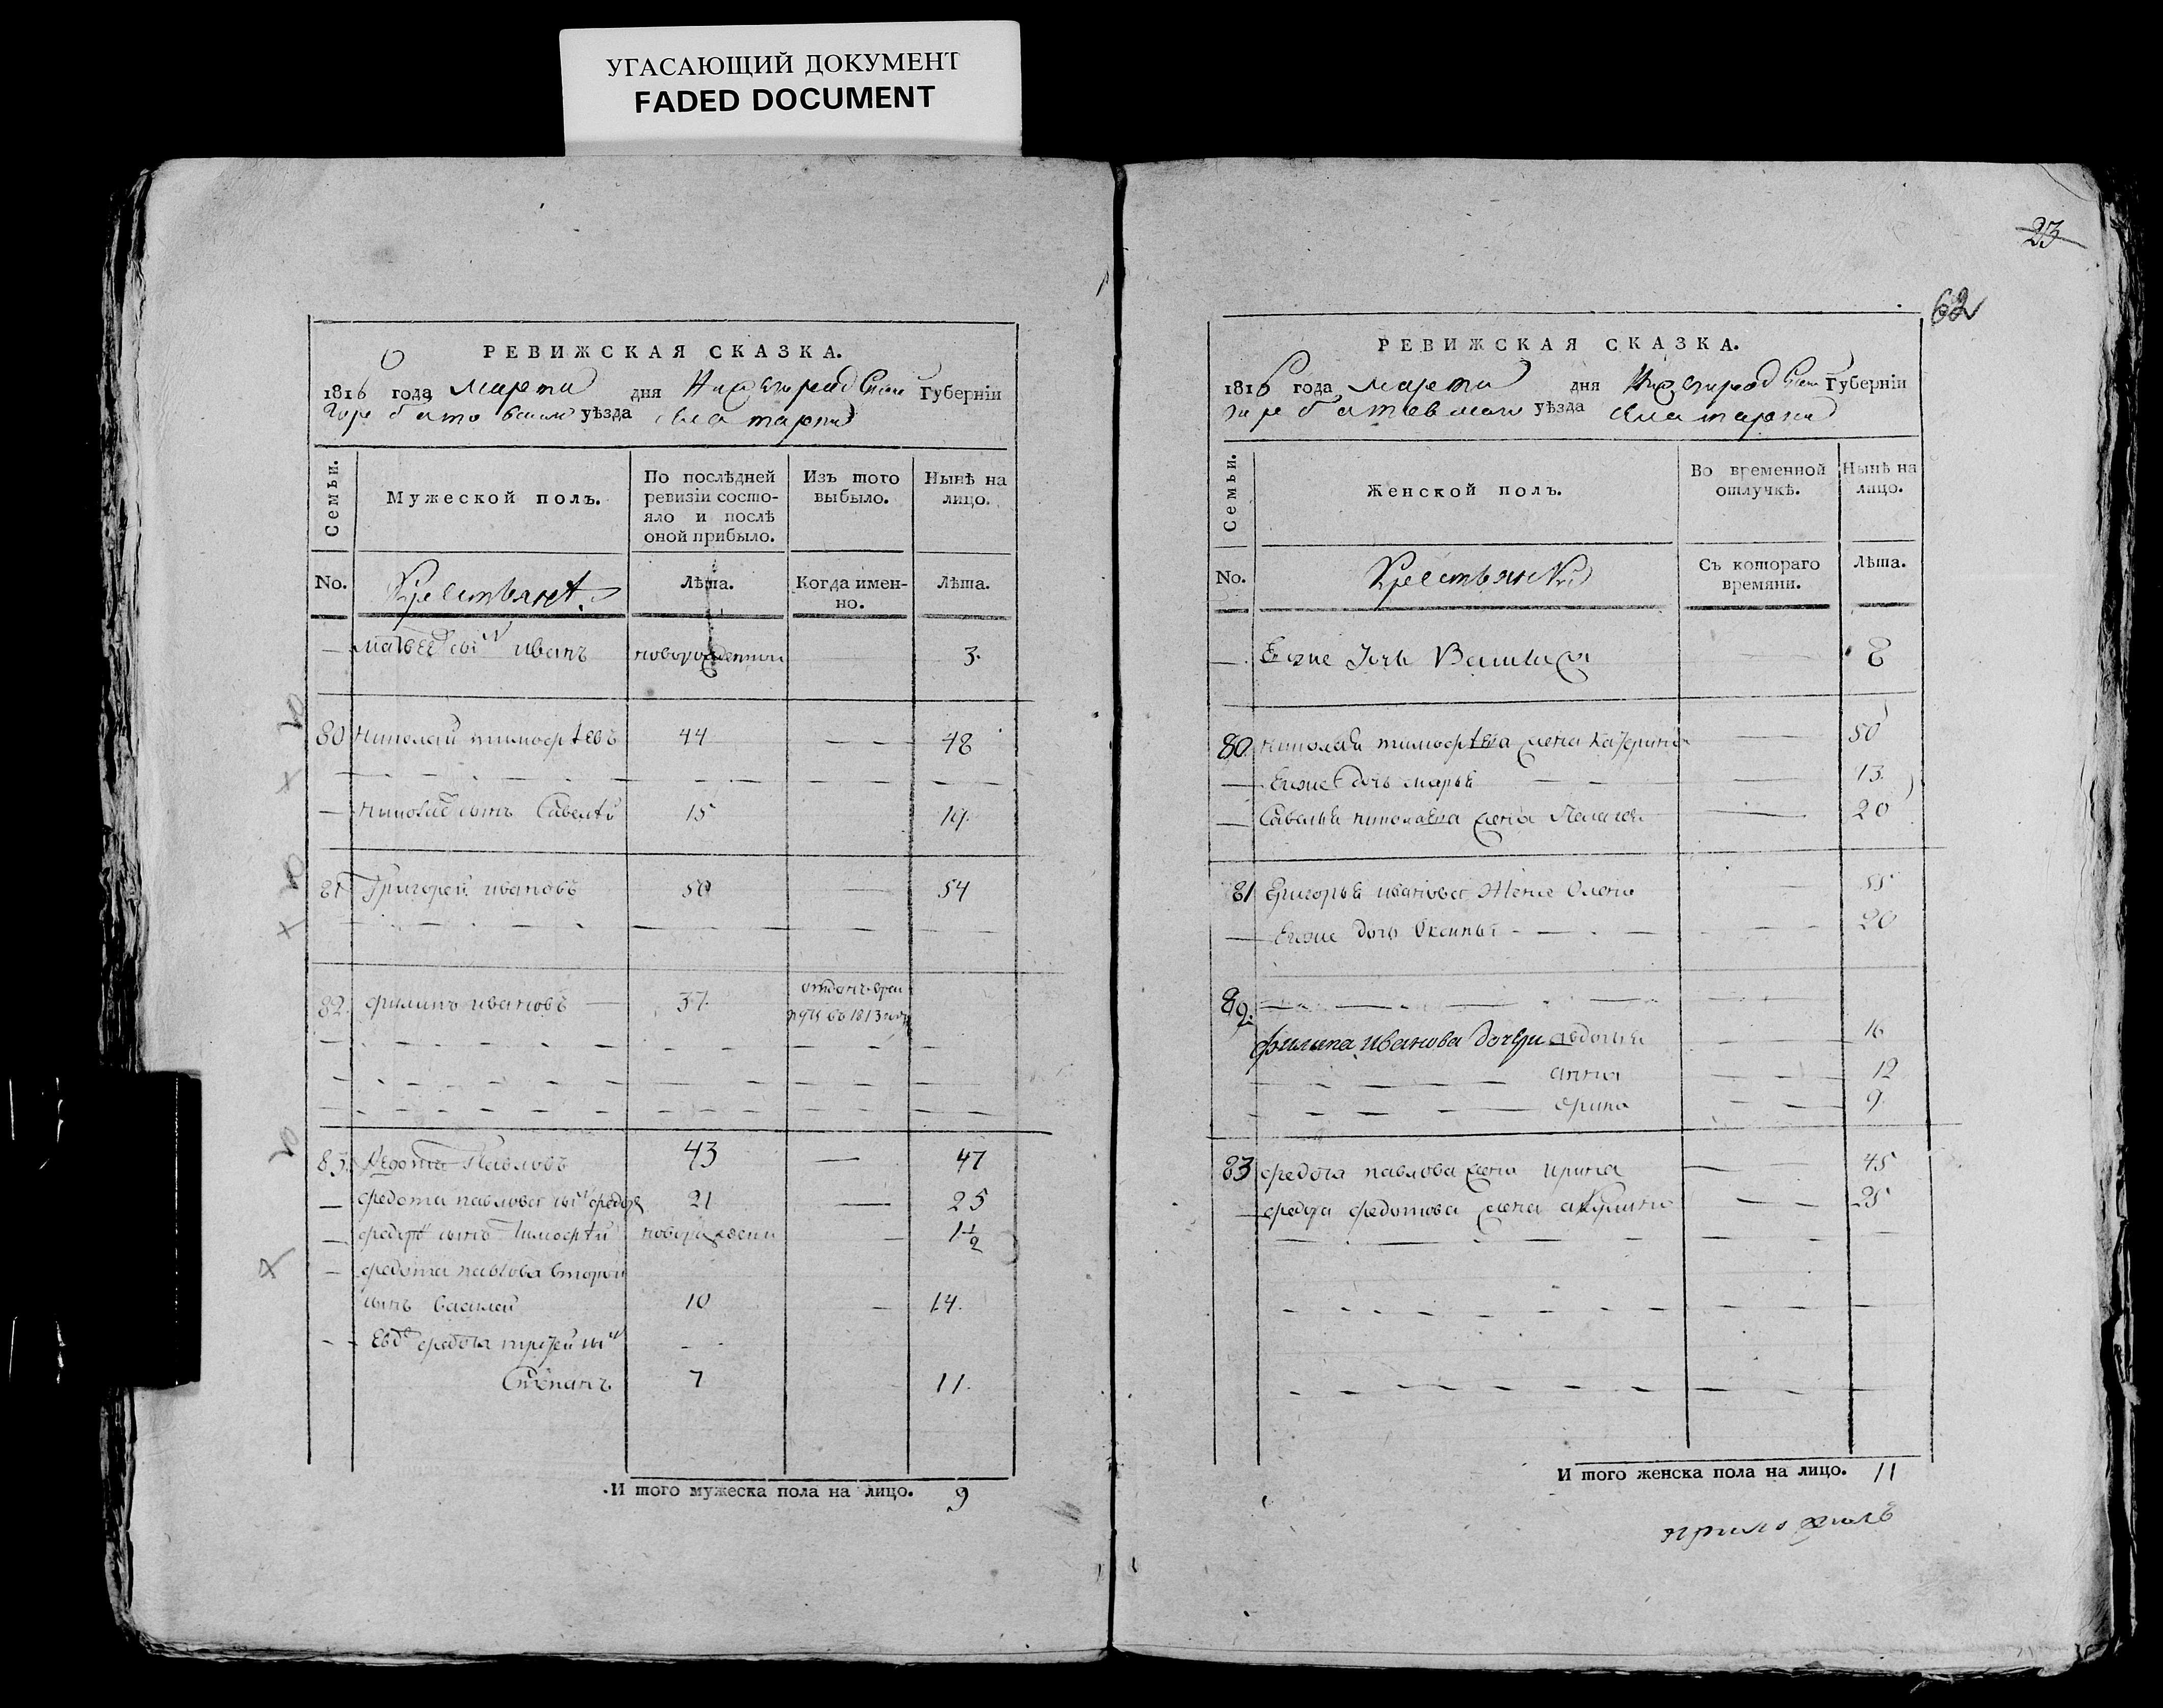 УГАСАЮЩИЙ ДОКУМЕНТ
FADED DOCUMENT
РЕВИЖСКАЯ СКАЗКА.
1816 года марта дня Нижегородской Губерніи
Горбатовскаго уѣзда села
Семьи.
Мужеской полъ.
По послѣдней ревизіи состояло и послѣ оной прибыло.
Изъ того выбыло.
Нынѣ на лицо.
No.
Крестьянѣ
Лѣта.
Когда именно.
Лѣта.
— иванъ новорожденной 3.
80 николай тимофѣевъ 44 — 48
— сынъ Савелѣй 15 19.
81 Григорей ивановъ 50 — 54
82. филипъ ивановъ — 37. отданъ въ 1813
83. Федотъ Павловъ 43 — 47
— федота павлова сынъ 21 — 25
— сынъ Тимофѣй новорожденн — 1 1/2
— федота павлова второй
сынъ василей 10 — 14.
федота третей сынъ
Степанъ 7 11.
И того мужеска пола на лицо. 9
23
62
РЕВИЖСКАЯ СКАЗКА.
1816 года марта дня Нижегородской Губерніи
Горбатовскаго уѣзда села
Семьи.
Женской полъ.
Во временной отлучкѣ.
Нынѣ на лицо.
No.
Крестьянки
Съ котораго времяни.
Лѣта.
— Ево же дочь 8
80. николая тимофѣева жена катерина — 50
— Ево же дочь марья — 13.
— Савелья николаева жена Пелагея — 20
81 Григорья иванова жена Олена — 55
— Ево же дочь Оксинья — 20
82.
филипа иванова дочери авдотья 16
анна 12
орина 9.
83 федота павлова жена ирина — 45
— федотова жена акулина — 25
И того женска пола на лицо. 11
приложилъ